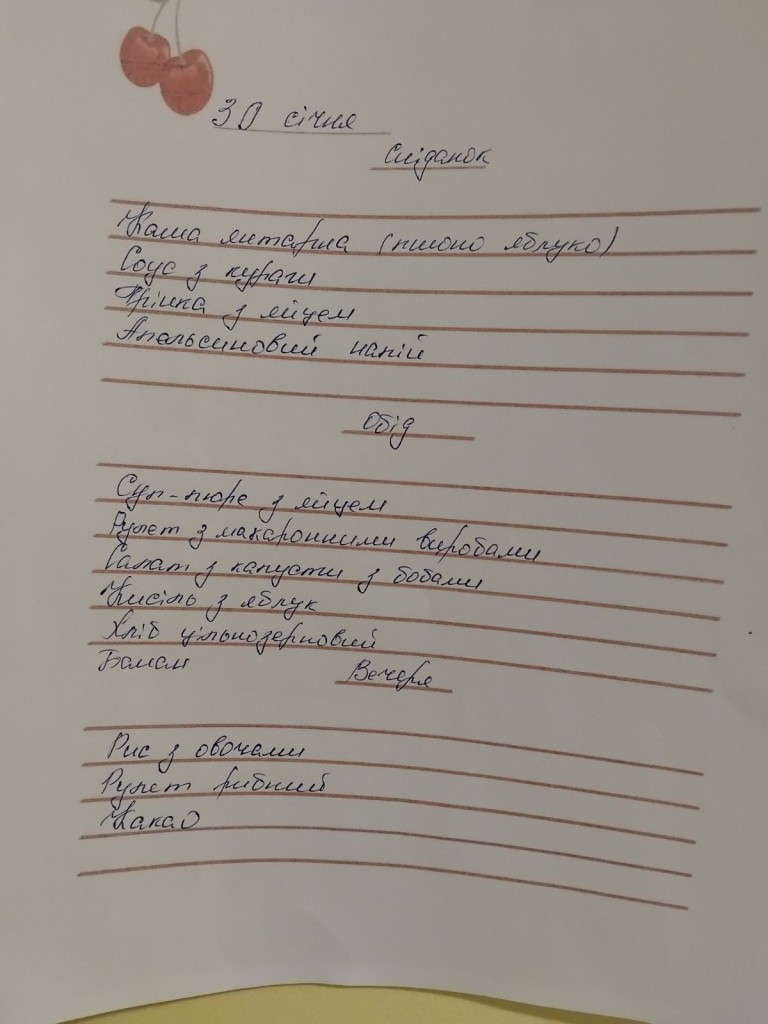 30 січня
Сніданок
Каша янтарна (пшоно яблуко)
Соус з кураги
Грінка з яйцем
Апельсиновий напій
Обід
Суп-пюре з яйцем
Рулет з макаронними виробами
Салат з капусти з бобами
Кисіль з яблук
Хліб цільнозерновий
Банан
Вечеря
Рис з овочами
Рулет рибний
Какао